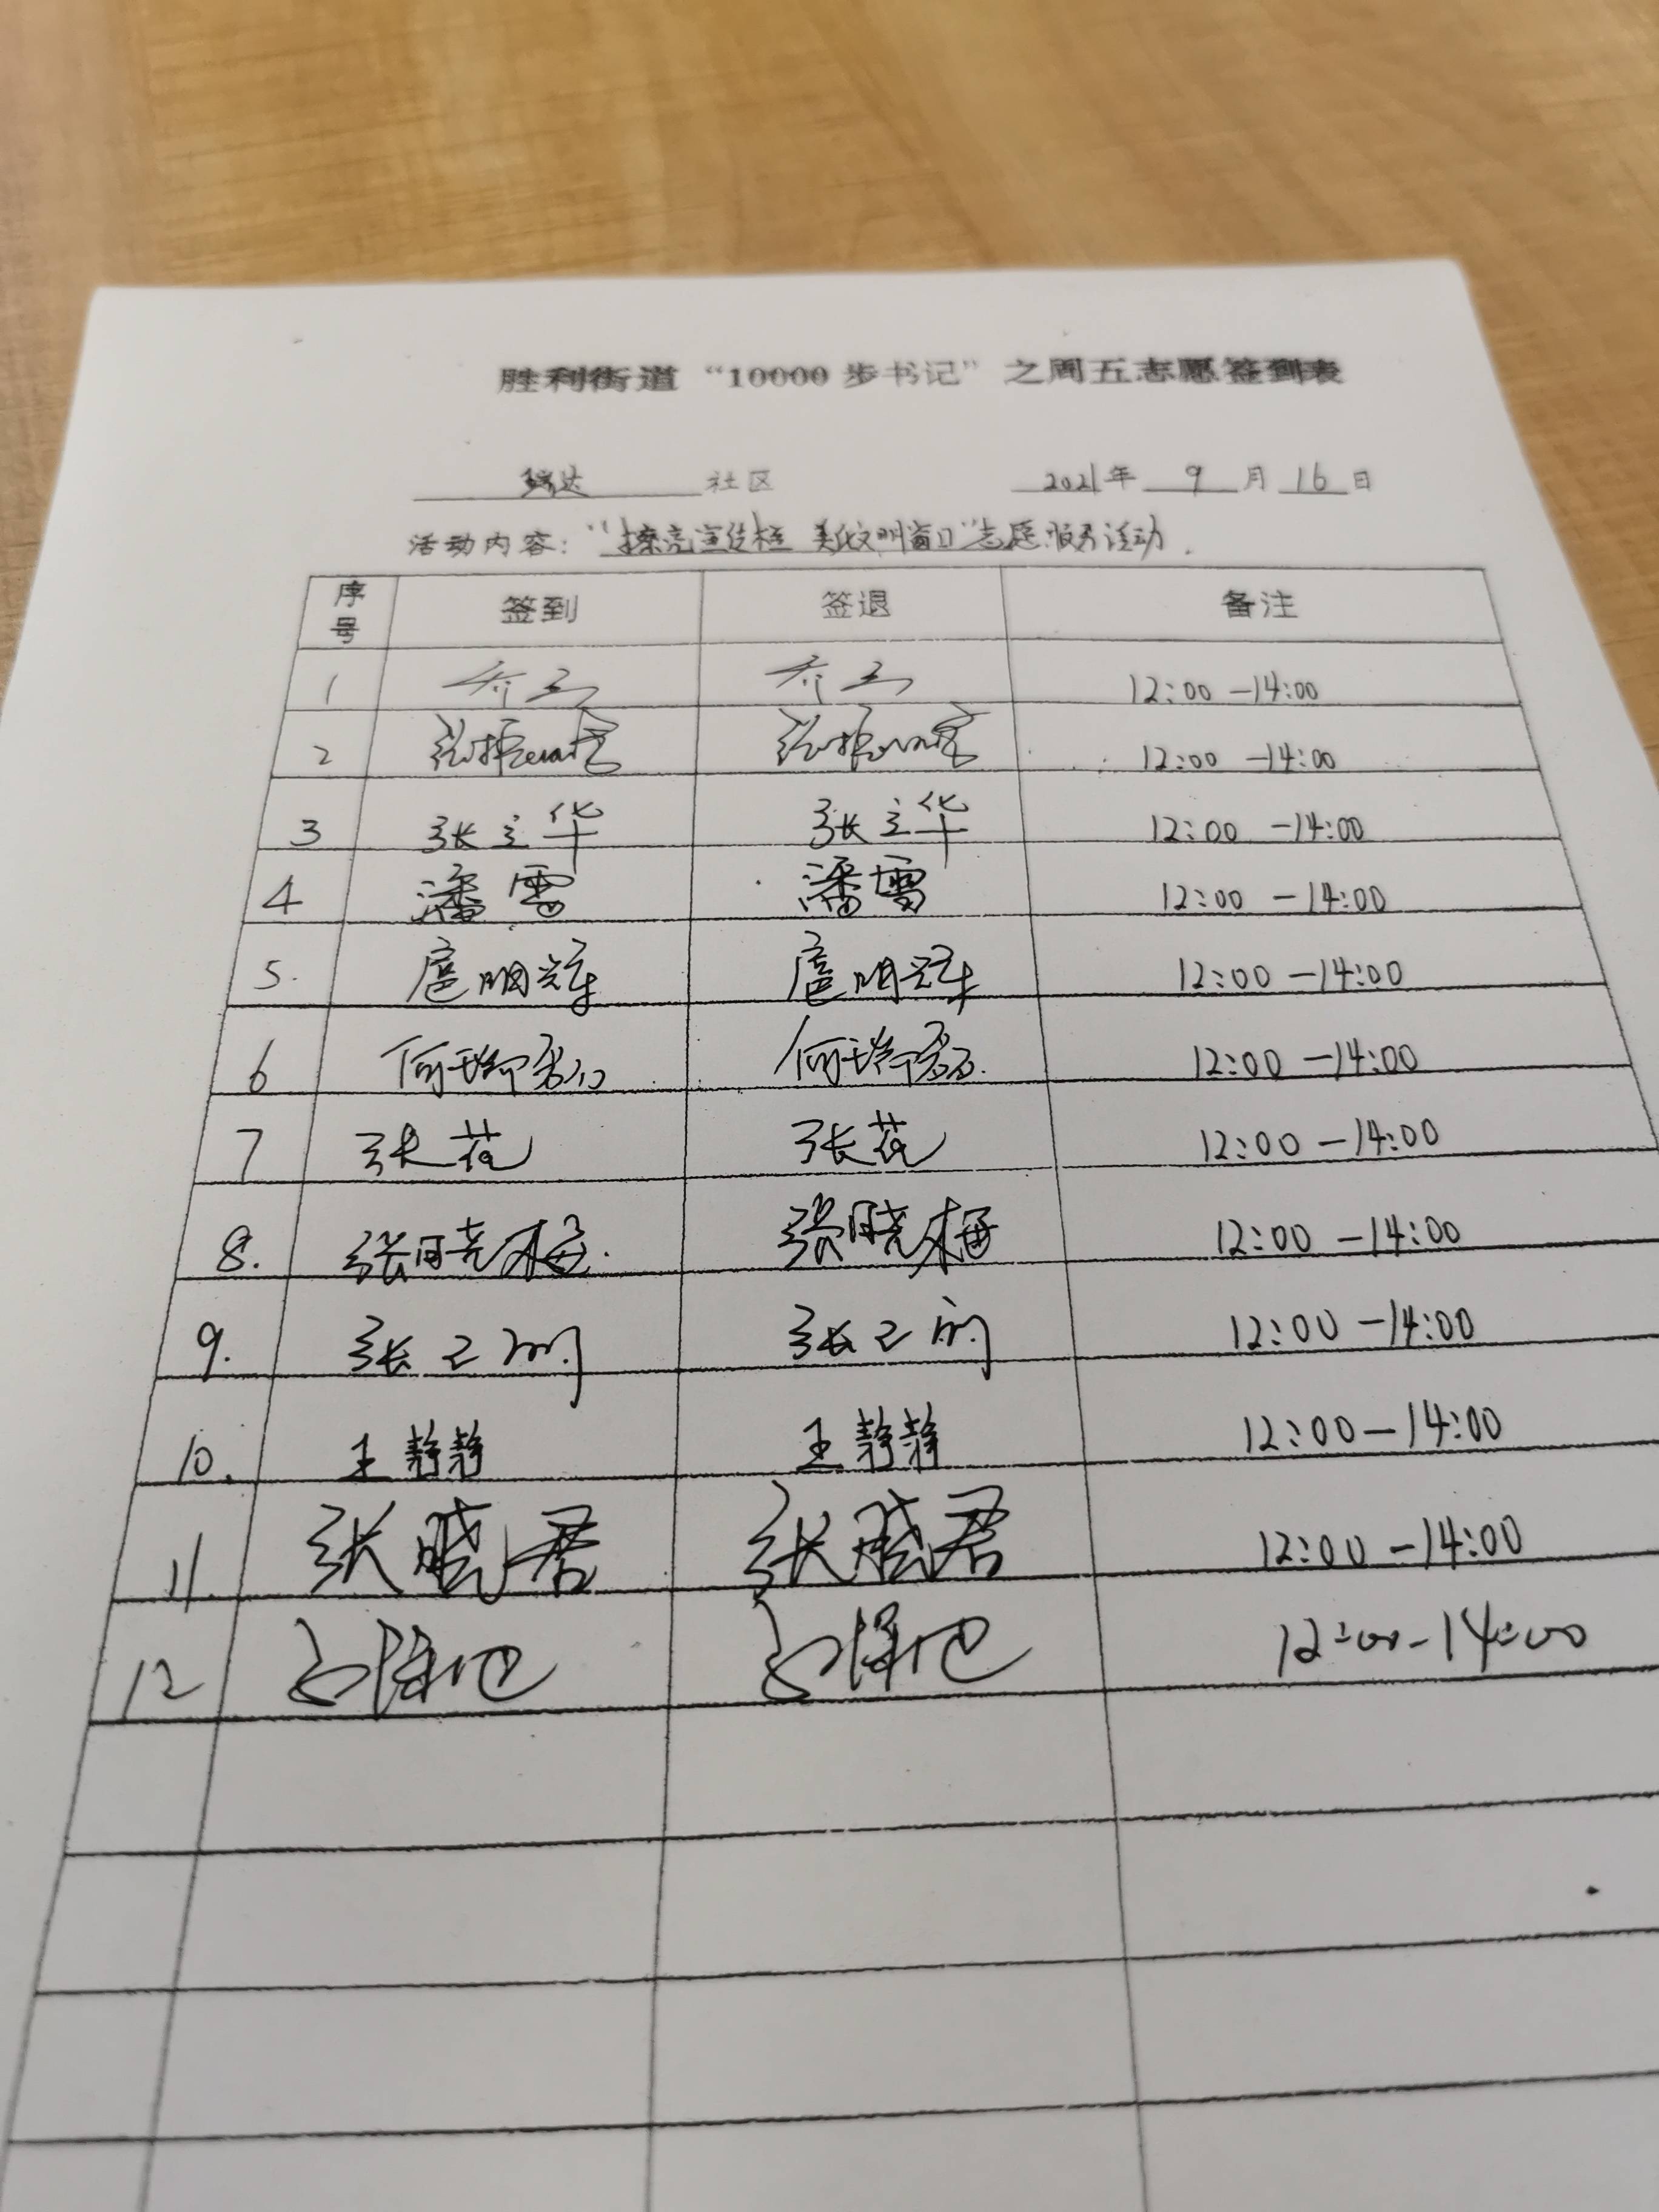 胜利街道“10000步书记”之周五志愿签到表
瑞达 社区 2021年 9 月 16 日
活动内容：“擦亮宣传栏 美化文明窗口”志愿服务活动.
序号 签到 签退 备注
1 12:00-14:00
2 12:00-14:00
3 张立华 张立华 12:00-14:00
4 潘雪 潘雪 12:00-14:00
5. 扈明辉 扈明辉 12:00-14:00
6 何瑞 何瑞 12:00-14:00
7 张花 张花 12:00-14:00
8. 张晓梅. 张晓梅 12:00-14:00
9. 张 张 12:00-14:00
10. 王静静 王静静 12:00-14:00
11. 张晓君 张晓君 12:00-14:00
12 12:00-14:00